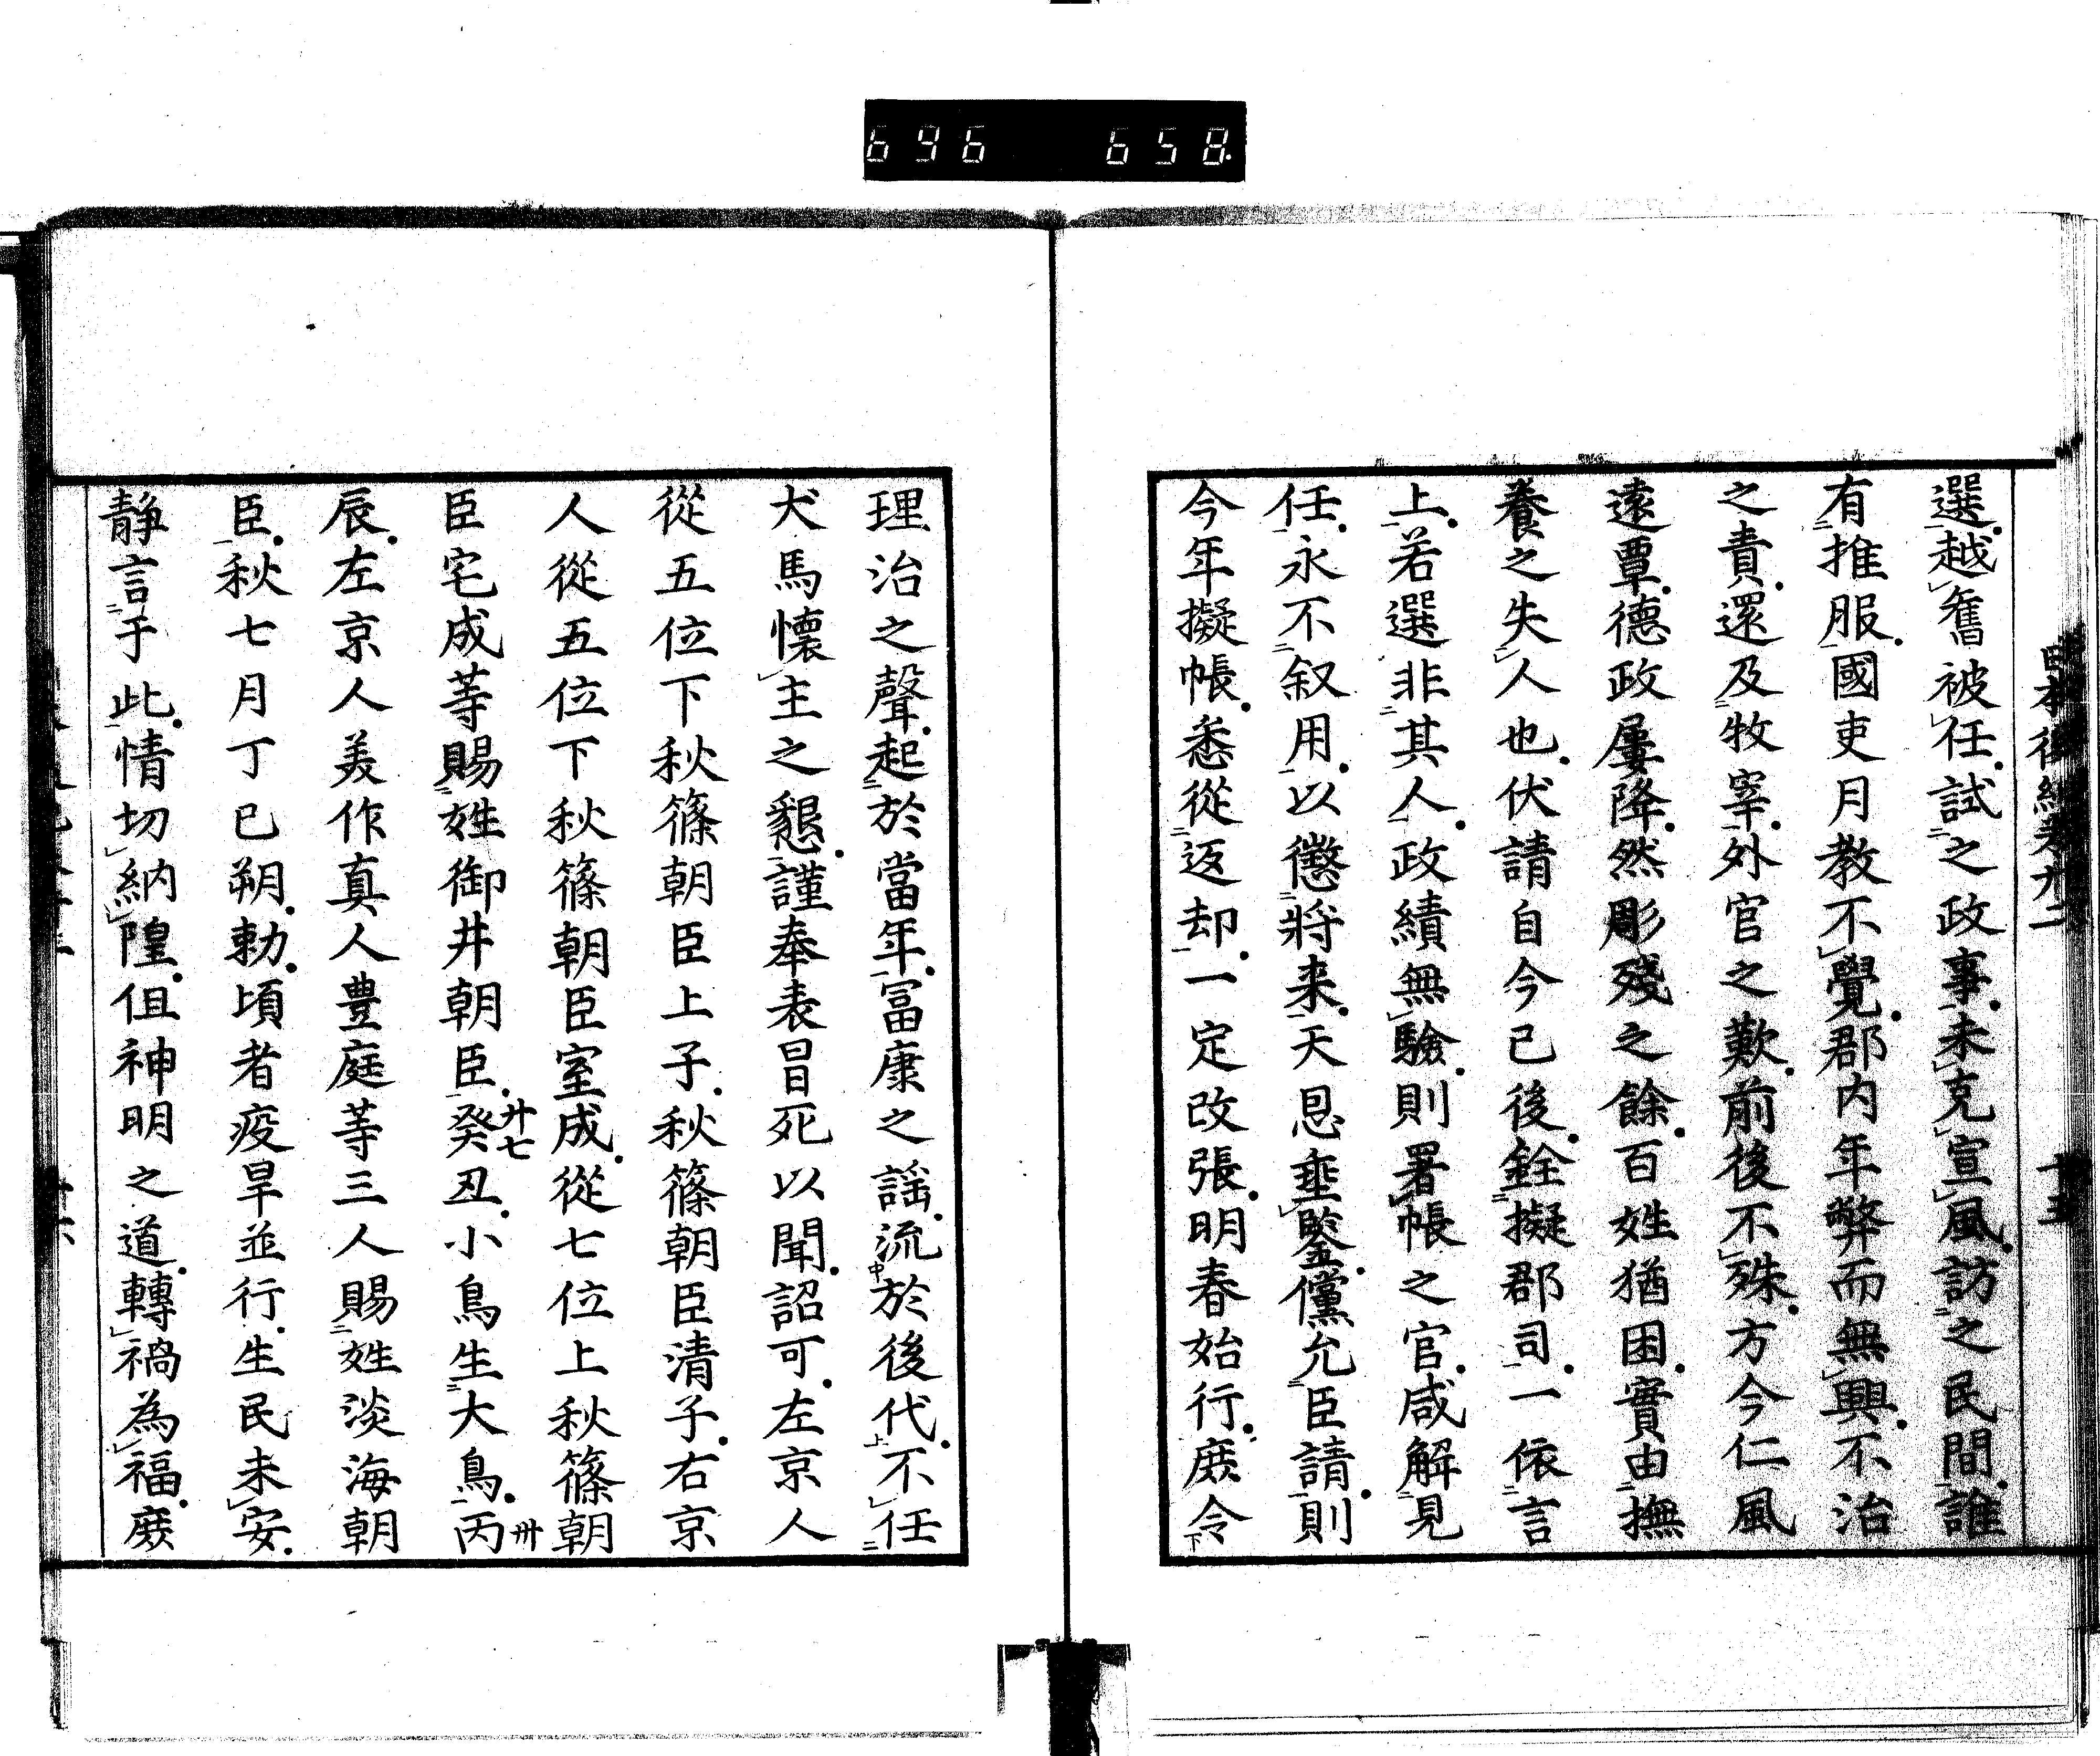 696 658
選越奮被任試之政事未克宣風訪之民間誰
有推服國吏月教不覺郡内年弊而無興不治
之責還及牧宰外官之歎前後不殊方今仁風
遠覃德政屢降然彫殘之餘百姓猶困實由撫
養之失人也伏請自今已後銓擬郡司一依言
上若選非其人政績無驗則署帳之官咸解見
任永不叙用以懲將来天恩垂鑒儻允臣請則
今年擬帳悉從返却一定改張明春始行庶令
理治之聲起於當年富康之謡流於後代不任
犬馬懷主之懇謹奉表冒死以聞詔可左京人
從五位下秋篠朝臣上子秋篠朝臣清子右京
人從五位下秋篠朝臣室成從七位上秋篠朝
臣宅成等賜姓御井朝臣癸丑小鳥生大鳥丙
廾七
卅
辰左京人美作真人豊庭等三人賜姓淡海朝
臣秋七月丁巳朔勅頃者疫旱並行生民未安
静言于此情切納隍但神明之道轉禍為福庶